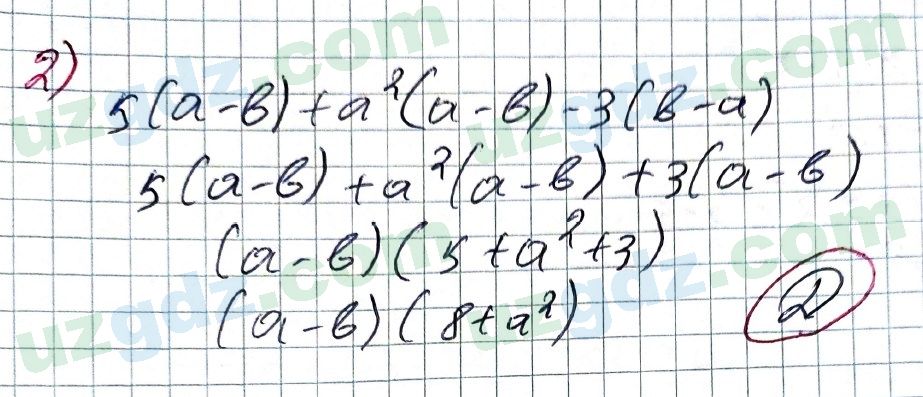 2)
5(a-в)+a²(a-в)-3(в-a)
5(a-в)+a²(a-в)+3(a-в)
(a-в)(5+a²+3)
(a-в)(8+a²)
uzgdz.com
uzgdz.com
uzgdz.com
uzgdz.com